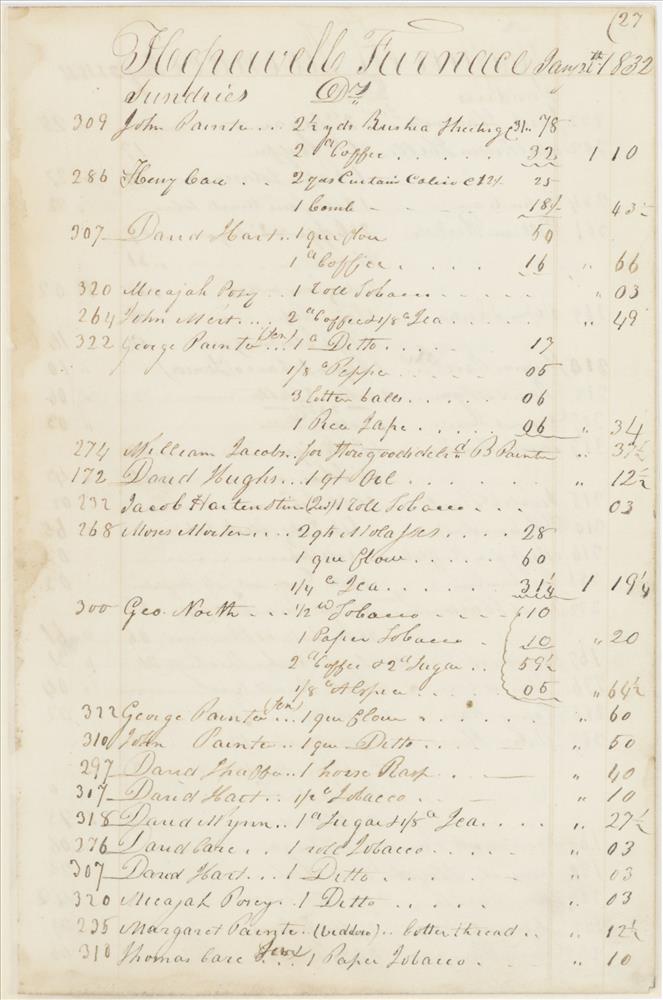 (27
Hopewell Furnace Jany 31th 1832
Sundries Drs
309 John Painter... 2½ yds Russia Sheeting @31.. 78
2 lb Coffee ..... 32 1 10
286 Henry Care .. 2 yds Curtain Calico @12½ 25
1 Comb - - - 18½ 43½
307 David Hart.. 1 qur flour 50
1 lb Coffee ..... 16 " 66
320 Micajah Posey.. 1 roll Tobacco ...... " 03
264 John Mert... 2 lb Coffee & 1/8 lb Tea ..... " 49
322 George Painter (Jen) ... 1 lb Ditto ..... 17
1/8 lb Pepper .... 05
3 Cotton balls ..... 06
1 Piece Tape ..... 06 " 34
274 William Jacobs.. for Store goods deld B Painter " 37½
172 David Hughs.. 1 qt Oil ....... " 12½
232 Jacob Hartenstine (2nd) 1 roll Tobacco ... 03
268 Moses Morten.... 2 qts Molasses .... 28
1 qur flour ..... 60
1/4 lb Tea ...... 31¼ 1 19¼
300 Geo. North ... ½ lb Tobacco ---- 10
1 Paper Tobacco . 10 " 20
2 lb Coffee & 2 lb Sugar .. 59½
1/8 lb .... 05 " 64½
322 George Painter (Jen) ... 1 qur flour ...... " 60
310 John Painter.. 1 qur Ditto .... " 50
297 David Shaffer.. 1 horse Rasp .... " 40
317 David Hart.. ½ lb Tobacco .... " 10
318 David Wynn.. 1 lb Sugar & 1/8 lb Tea .... " 27½
276 David Care.. 1 roll Tobacco ..... " 03
307 David Hart... 1 Ditto ..... " 03
320 Micajah Posey.. 1 Ditto ..... " 03
235 Margaret Painter (widdow).. Cotton thread .. " 12½
318 Thomas Care Jenr ... 1 Paper Tobacco . " 10